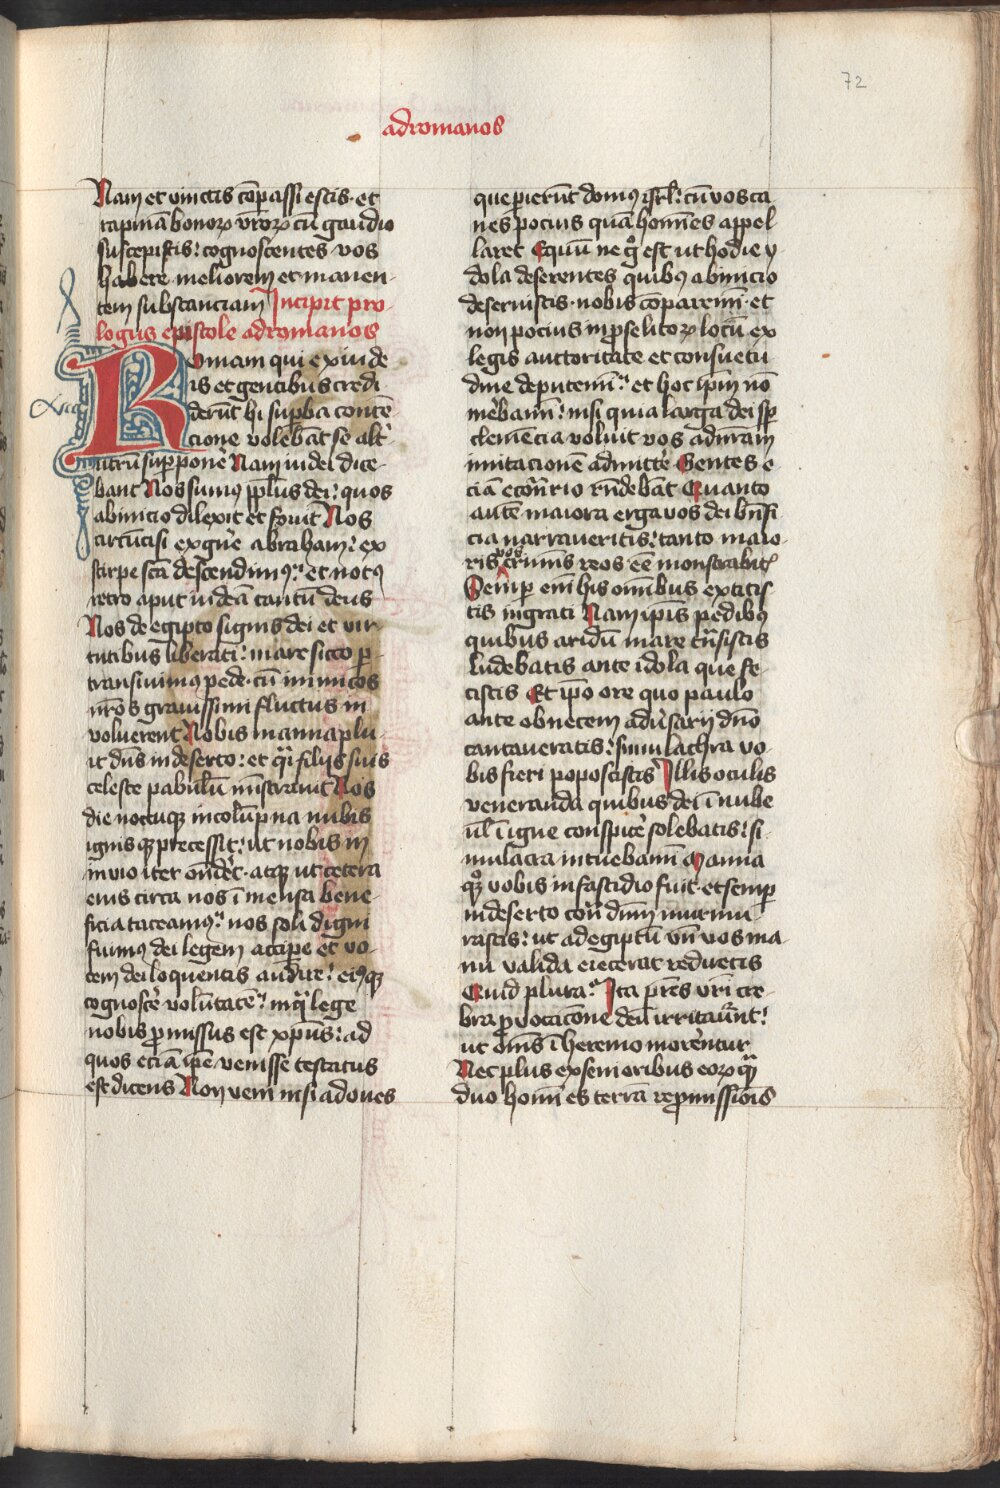 72
ad romanos
Nam et vinctis cōpassi estis · et
rapinā bonoꝝ vr̄oꝝ cū gaudio
suscepistis : cognoscentes vos
habere meliorem et manen-
tem substanciam Incipit pro-
logus epistole ad romanos
Romam qui ex iude
is et gentibus credi
derūt hi supba contē
cione volebāt se alt̄
utrū suꝑponē Nam iudei dice-
bant Nos sumꝯ ppl̄us dei : quos
ab inicio dilexit et fovit Nos
circūcisi ex gn̄e abraham : ex
stirpe scā descendimꝯ : et notꝯ
retro aput iudeā tantū deus
Nos de egipto signis dei et vir
tutibus liberati : mare sicco ꝑ
transivimꝯ pede · cū inimicos
nr̄os gravissimi fluctus in
voluerent Nobis manna plu
it dn̄s in deserto : et qͣi filijs suis
celeste pabulū mīstravit Nos
die noctuqꝫ in colūpna nubis
ignisqꝫ precessit : ut nobis in
invio iter ondēt · atqꝫ ut cetera
eius circa nos īmensa bene-
ficia taceamꝯ : nos soli digni
fuimꝯ dei legem accipe et vo-
cem dei loquentis audire : eiꝯqꝫ
cognoscē volūtatē : in qͣ lege
nobis ꝓmissus est xp̄us : ad
quos eciā ip̄e venisse testatus
est dicens Non veni nisi ad oves
que perierūt domꝯ isrl̄ : cū vos ca
nes pocius quā homīes appel
laret Equū ne gͦ est ut hodie y
dola deserentes quibꝯ ab inicio
deservistis · nobis cōparemī · et
non pocius in proselitoꝝ locū ex
legis auctoritate et consuetu
dine deputemī : et hoc ip̄m nō
mērbamī : nisi quia larga dei sp̄
clemēcia voluit vos ad nr̄am
imitacionē admittē Gentes e
ciā econtrario rn̄debāt Quanto
autē maiora erga vos dei bn̄fi
cia narraveritis : tanto maio-
ris vos crimīs reos eē monstrabitꝭ
Semꝑ enī his omībus extitis
tis ingrati Nam ip̄is pedibꝯ
quibus aridū mare trn̄sistis
ludebatis ante idola que fe
cistis Et ip̄o ore quo paulo
ante ob necem adūsarij dn̄o
cantaveratis : simulachra vo-
bis fieri poposcistis Illis oculis
veneranda quibus dei ī nube
vl̄ ī igne conspicē solebatis : si-
mulacra intuebamī Manna
qꝫ vobis in fastidio fuit · et semꝑ
in deserto cont̄ dn̄m murmu
rastis : ut ad egiptū vn̄ vos ma-
nu valida eiecerat reduceris
Quid plura : Ita pr̄es vr̄i cre-
bra ꝓvocacione deū irritaverūt :
ut om̄s ī heremo morērentur
Nec plus ex senioribus eoꝝ qͣ
duo homīes terrā repromissiōis